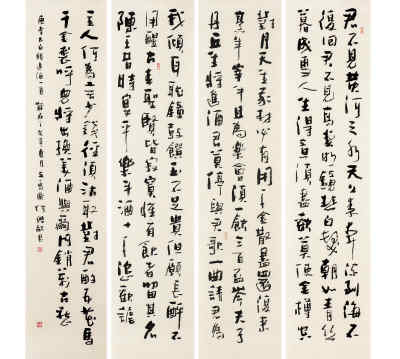 君不見黃河之水天上來奔流到海不
復回君不見高堂明鏡悲白髮朝如青絲
暮成雪人生得意須盡歡莫使金樽空
對月天生我材必有用千金散盡還復來
烹羊宰牛且為樂會須一飲三百杯岑夫子
丹丘生將進酒君莫停與君歌一曲請君為
我傾耳聽鐘鼓饌玉不足貴但願長醉不
用醒古來聖賢皆寂寞惟有飲者留其名
陳王昔時宴平樂斗酒十千恣歡謔
主人何為言少錢徑須沽取對君酌五花馬
千金裘呼兒將出換美酒與爾同銷萬古愁
唐李太白詩將進酒一首